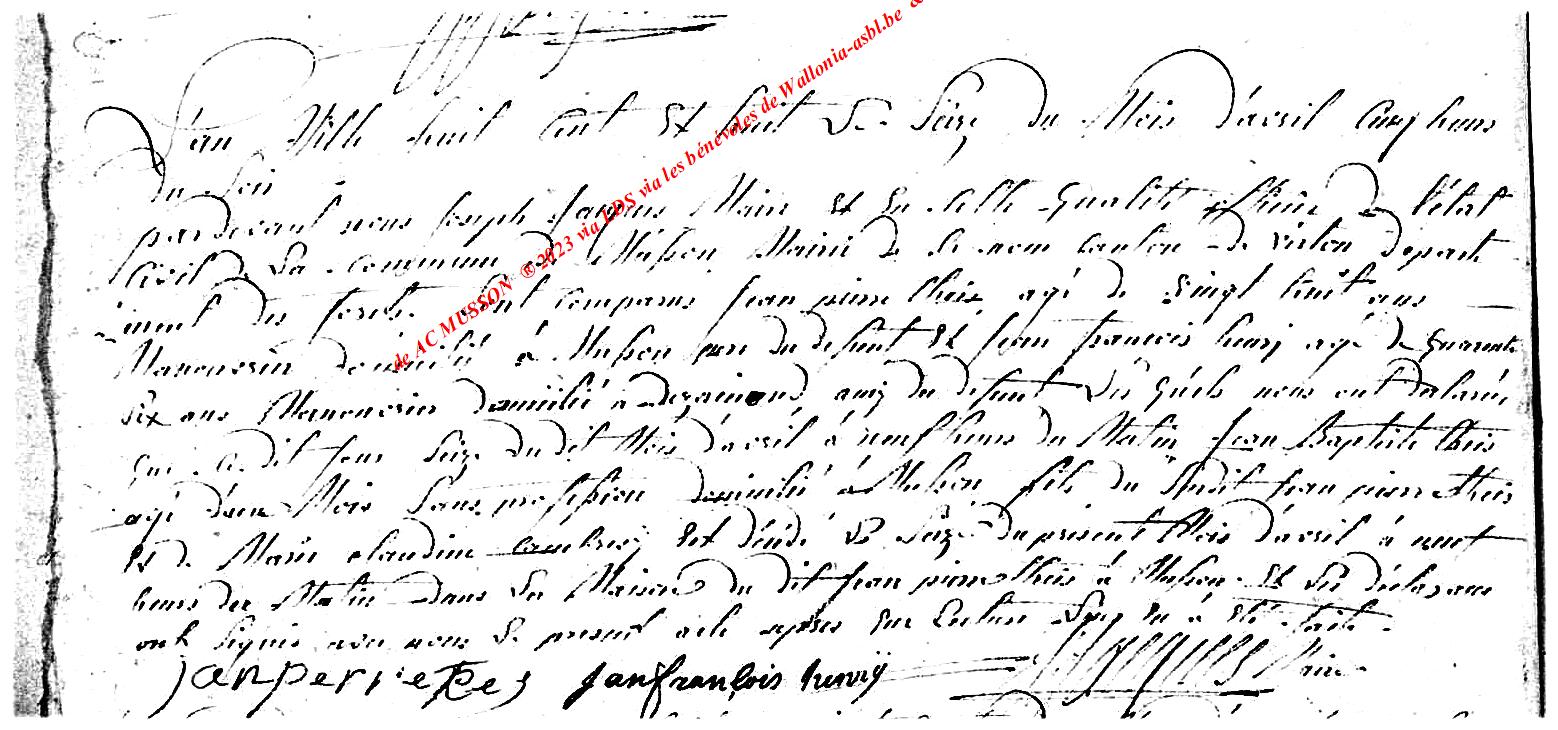 L'an Mille huit Cent Et huit Le Seize du Mois d'avril Cinq heures
du Soir
pardevant nous Joseph Jacques Maire Et En Cette qualité officier de l'état
Civil de La commune de Musson Mairie de Ce nom canton de virton départ
ement des forêts sont comparus Jean pierre thies agé de vingt huit ans
Manouvrier domicilié à Musson pere du défunt Et Jean françois henry agé de quarante
six ans Manouvrier domicilié à amy du défunt Les quels nous ont déclarés
que ce dit jour Seize du dit Mois d'avril à neuf heures du Matin Jean Baptiste thies
agé d'une Mois Sans profession domicilié à Musson fils du Susdit Jean pierre thies
Et de Marie claudine Est décédé Le Seize du present Mois d'avril à neuf
heures du Matin dans La Maison du dit Jean pierre thies à Musson Et Les déclarans
ont signés avec nous Le present acte après que Lecture Leur En à Eté faite
janperre tes jan françois henrÿ Maire
de AC MUSSON ®2023 via EDS via les bénévoles de Wallonia-asbl.be &